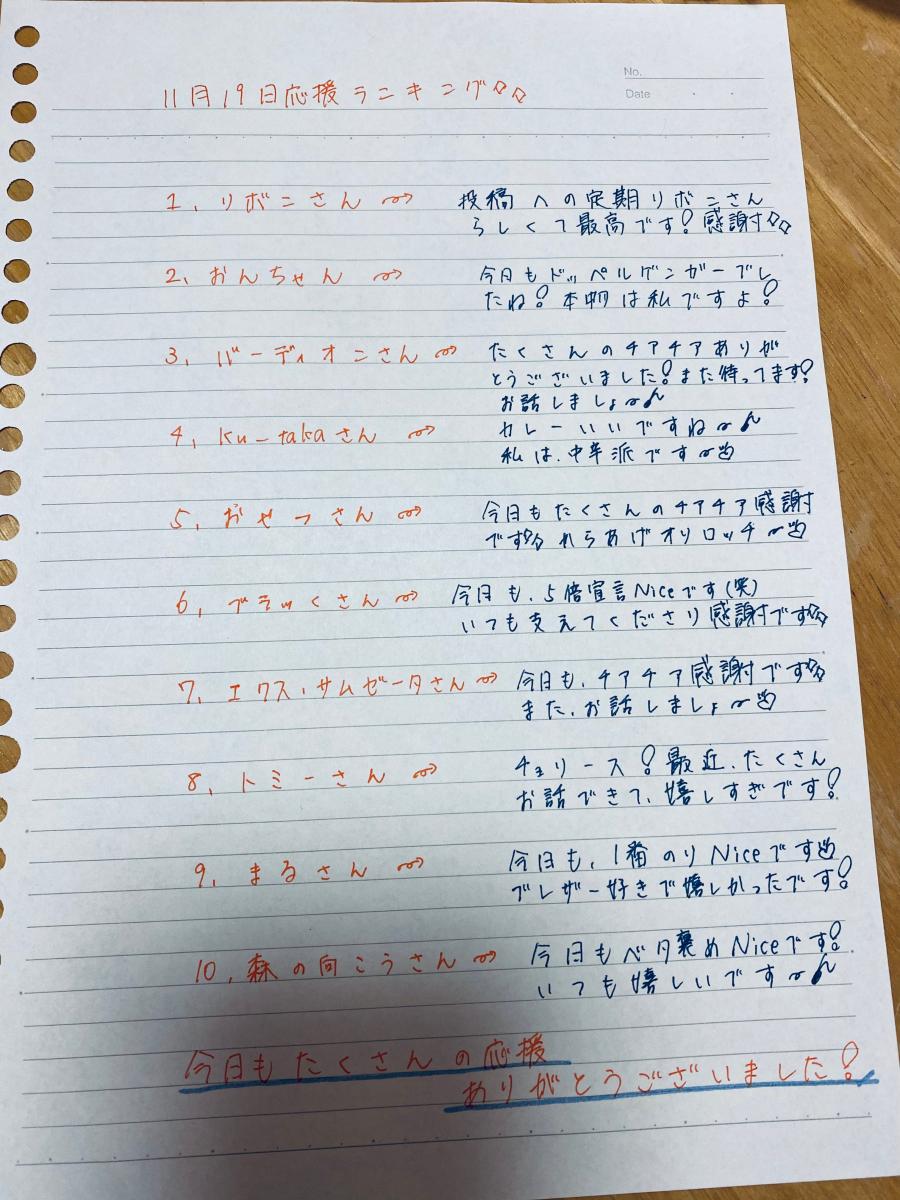 No.
Date
11月19日応援ランキング☆☆
1, リボンさん 〜>
投稿への定期リボンさん
らしくて最高です!感謝☆☆
2, おんちゃん 〜>
今日もドッペルゲンガーでし
たね!本物は私ですよ!
3, バーディオンさん 〜>
たくさんのチアチアありが
とうございました!また待ってます!
お話しましょ〜♪
4, ku-takaさん 〜>
カレーいいですね〜♪
私は、中辛派です〜
5, おせっさん 〜>
今日もたくさんのチアチア感謝
です☆☆ からあげオリロッチ〜
6, ブラックさん 〜>
今日も、5倍宣言Niceです(笑)
いつも支えてくださり感謝です☆☆
7, エクス・サムゼータさん 〜>
今日も、チアチア感謝です☆☆
また、お話しましょ〜
8, トミーさん 〜>
チェリース!最近、たくさん
お話できて、嬉しすぎです!
9, まるさん 〜>
今日も、1番のりNiceです
ブレザー好きで嬉しかったです!
10, 森の向こうさん 〜>
今日もベタ褒めNiceです!
いつも嬉しいです〜♪
今日もたくさんの応援
ありがとうございました!